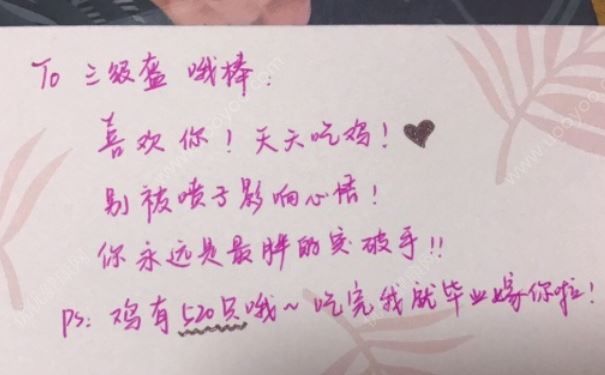 To 三级盔 哦棒:
喜欢你！天天吃鸡！
别被喷子影响心情！
你永远是最胖的突破手!!
ps: 鸡有520只哦~吃完我就毕业嫁你啦！